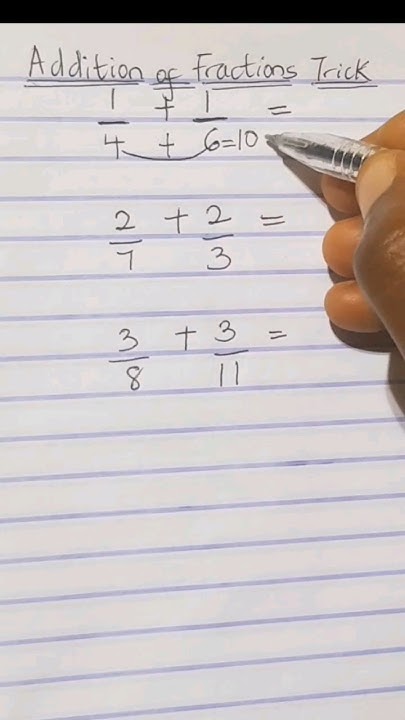 Addition of Fractions Trick
1/4 + 1/6 =
4 + 6 = 10
2/7 + 2/3 =
3/8 + 3/11 =